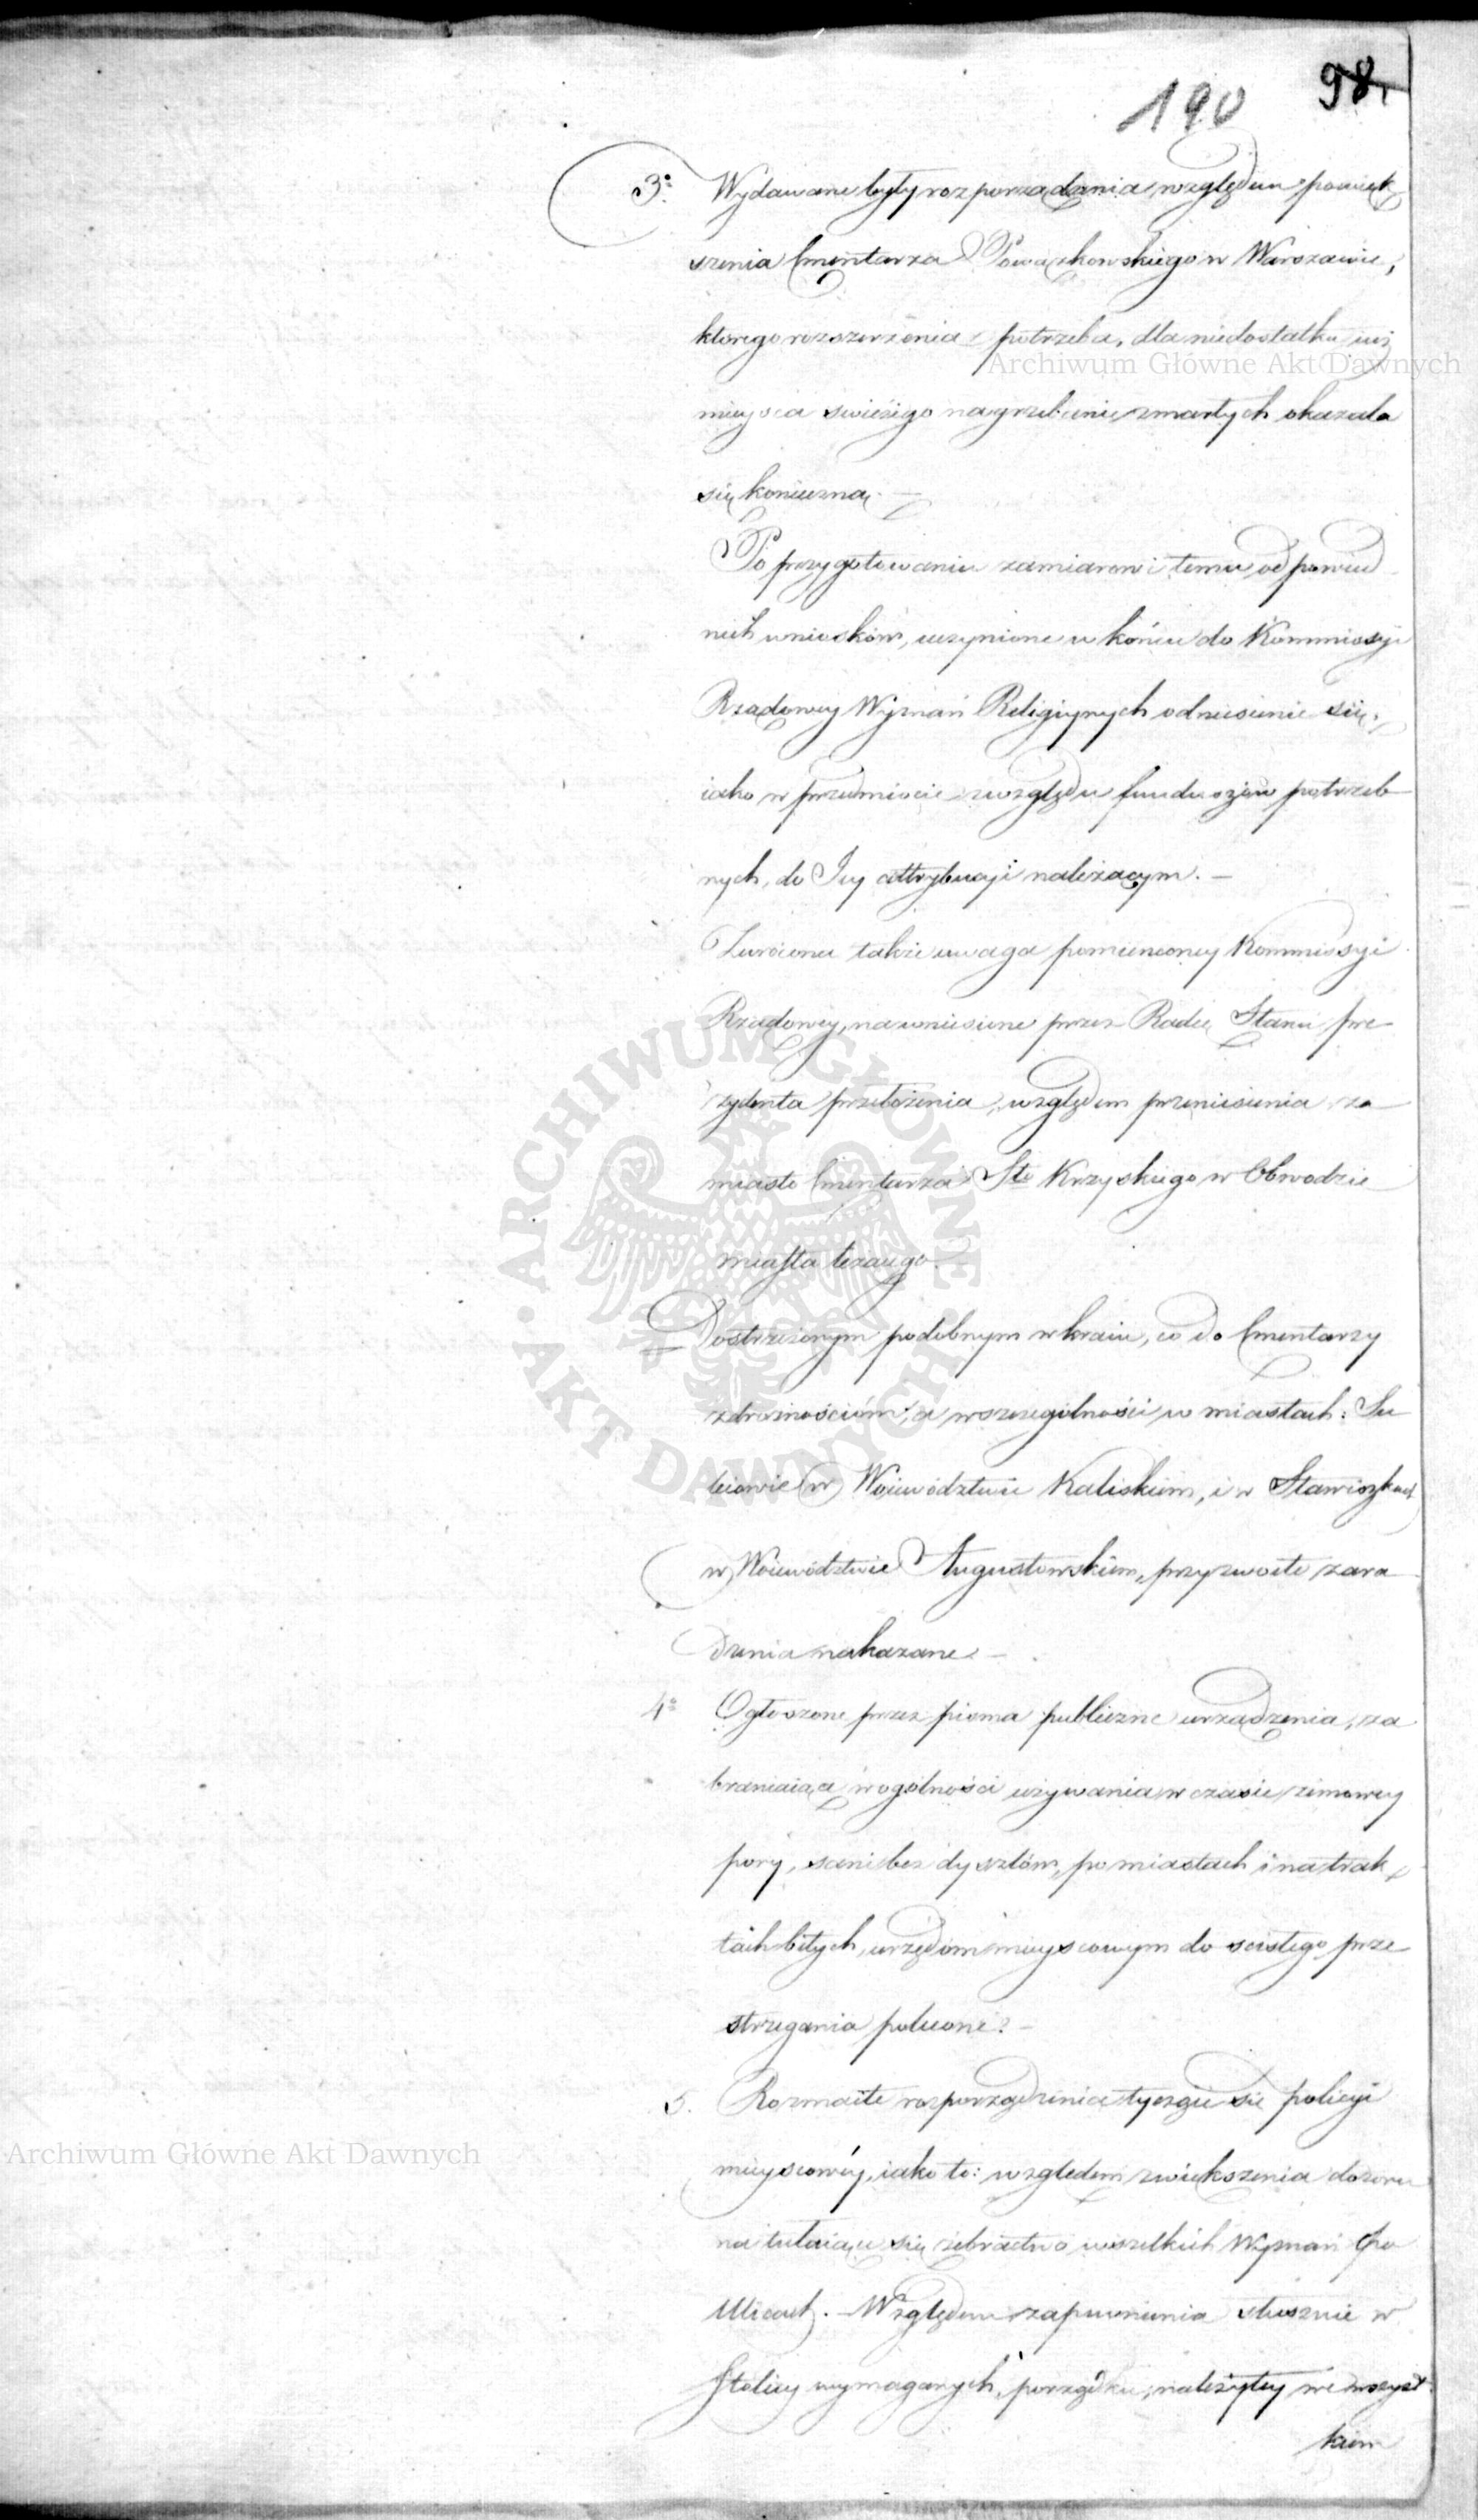 190 98.
3o Wydawane były rozporządzenia względem powięk
szenia Cmentarza Powązkowskiego w Warszawie,
ktorego rozszerzenia potrzeba, dla niedostatku iuż
mieysca swieżego na grzebanie zmarłych okazała
się konieczną. —
Po przygotowaniu zamiarowi temu odpowied
nich wniosków, uczynione w końcu do Kommissyi
Rządowey Wyznań Religiynych odniesienie się,
iako w przedmiocie z względu funduszów potrzeb
nych, do Jey attrybucyi należącym. —
Zwrócona także uwaga pomienioney Kommissyi
Rządowey, na wniesione przez Radcę Stanu Pre
zydenta przełożenia, względem przeniesienia za
miasto Cmentarza Sto Krzyskiego w Obwodzie
miasta leżącego.
Dostrzeżonym podobnym w kraiu, co do Cmentarzy
zdrożnościom, a w szczególności w miastach: Lu
bieniu w Woiewództwie Kaliskiem, i w Stawiszkach
w Woiewództwie Augustowskiem, przyzwoite zara
dzenia nakazane. —
4o Ogłoszone przez pisma publiczne urządzenia, za
braniaiące w ogólności używania w czasie zimowey
pory, sani bez dyszlów, po miastach i na trak
tach bitych, urzędom mieyscowym do scisłego prze
strzegania polecone. —
5. Rozmaite rozporządzenia tyczące się policyi
mieyscowéy, iako to: względem zwiększenia dozoru
na tułaiące się żebractwo wszelkich Wyznań po
Ulicach. — Względem zapewnienia słusznie w
Stolicy wymaganych, porządku, należytey we wszyst
kiem
Archiwum Główne Akt Dawnych
Archiwum Główne Akt Dawnych
ARCHIWUM GŁÓWNE AKT DAWNYCH